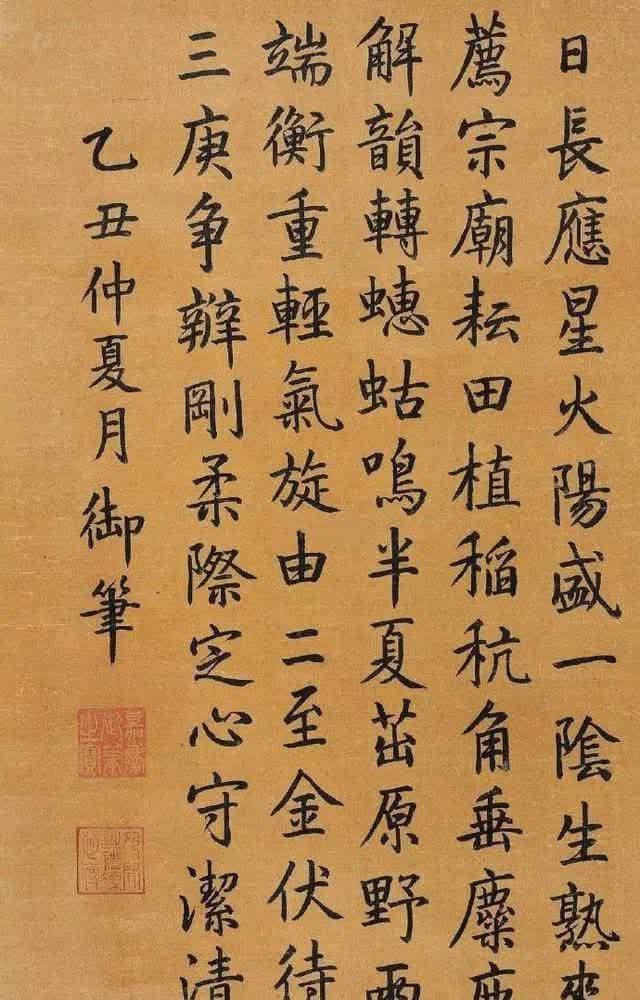 日長應星火陽盛一陰生熟
薦宗廟耘田植稻秔角垂麋
解韻轉蟪蛄鳴半夏茁原野
端衡重輕氣旋由二至金伏待
三庚争辩剛柔際定心守潔清
乙丑仲夏月御筆